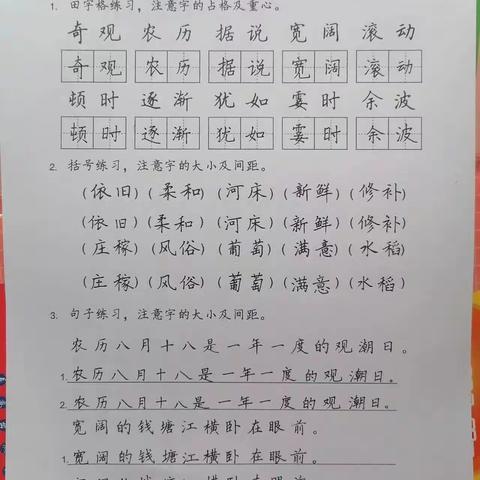 1. 田字格练习，注意字的占格及重心。
奇观 农历 据说 宽阔 滚动
奇观 农历 据说 宽阔 滚动
顿时 逐渐 犹如 霎时 余波
顿时 逐渐 犹如 霎时 余波
2. 括号练习，注意字的大小及间距。
(依旧) (柔和) (河床) (新鲜) (修补)
(依旧) (柔和) (河床) (新鲜) (修补)
(庄稼) (风俗) (葡萄) (满意) (水稻)
(庄稼) (风俗) (葡萄) (满意) (水稻)
3. 句子练习，注意字的大小及间距。
农历八月十八是一年一度的观潮日。
1. 农历八月十八是一年一度的观潮日。
2. 农历八月十八是一年一度的观潮日。
宽阔的钱塘江横卧在眼前。
1. 宽阔的钱塘江横卧在眼前。